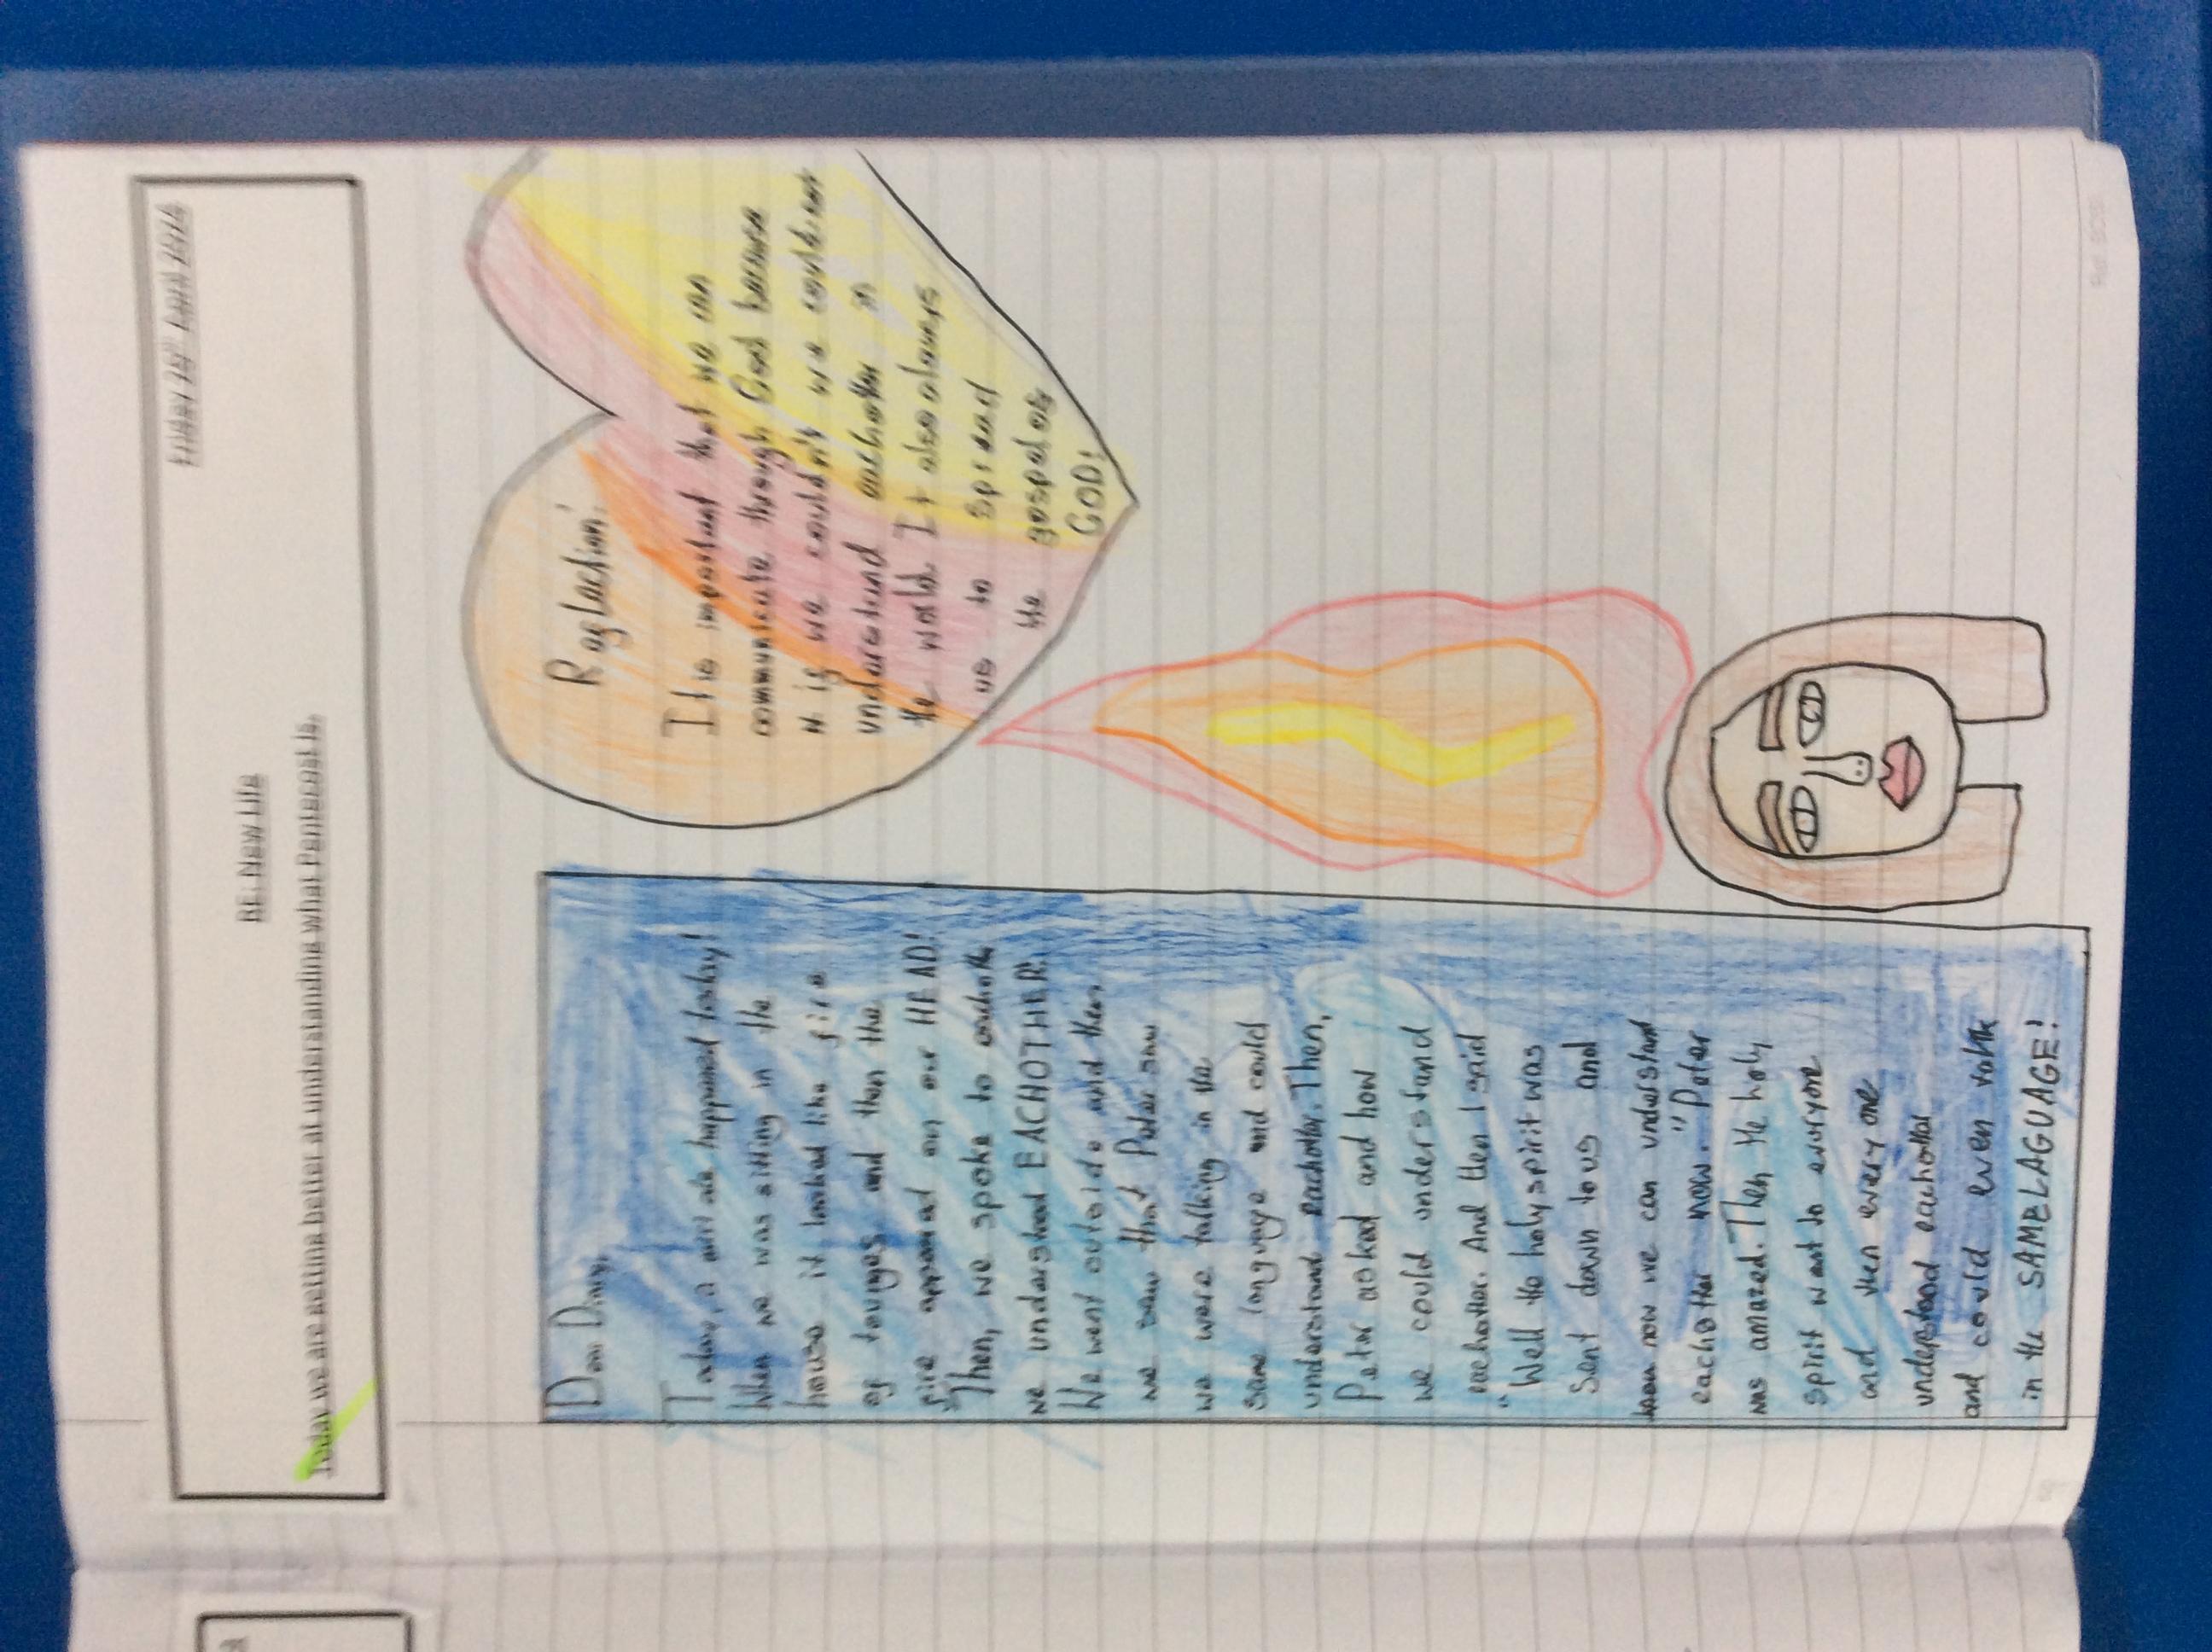 RE: New Life
Today we are getting better at understanding what Pentecost is.
Dear Diary,
Today, a miricale happened today!
When we was sitting in the
house it looked like fire
of tounges and then the
fire appeared on our HEAD!
Then, we spoke to eachoth
we understood EACHOTHER!
We went outside and then
we saw that Peter saw
we were talking in the
same language and could
understand eachother. Then,
Peter asked and how
we could understand
eachother. And then I said
"Well the holy spirit was
Sent down to us and
now we can understand
eachother now." Peter
was amazed. Then the holy
spirit went to everyone
and then every one
understood eachother
and could even talk
in the SAMELAGUAGE!
Reglaction:
It is important that we can
communicate through God because
if we couldn't we
understand eachother in
the world. It also alowys
us to spread
the gospel of
GOD!